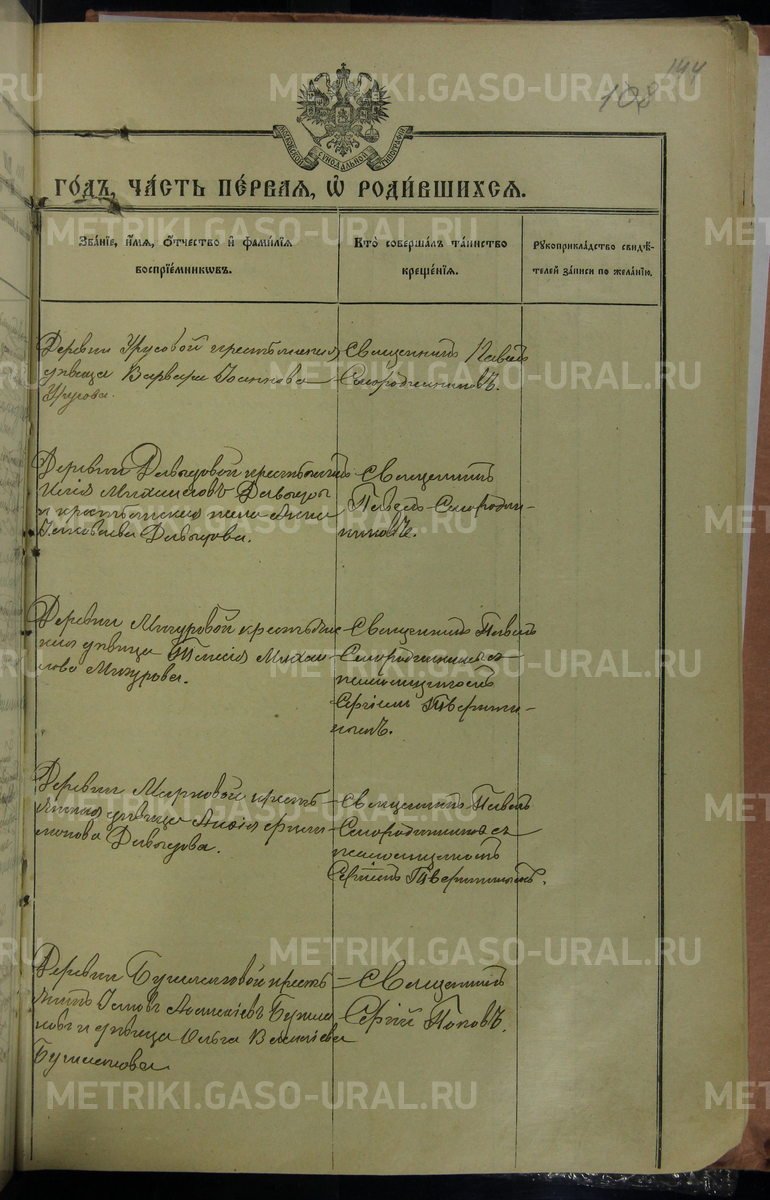 144
108
МОСКОВСКОЙ СѴНОДАЛЬНОЙ ТИПОГРАФІИ
ГО́ДЪ, ЧА́СТЬ ПЕ́РВАЯ, Ѡ РОДИ́ВШИХСЯ.
Зва́нїе, и҆́мя, ѻ҆́тчество и҆ фами́лїя
воспрїе́мникѡвъ.
Кто̀ соверша́лъ та́инство
креще́нїя.
Рꙋкоприкла́дство свидѣ́-
телей за́писи по жела́нїю.
Деревни Урусовой крестьянская
дѣвица Варвара Іоаннова
Урусова.
Священникъ Павелъ
Смородинниковъ.
Деревни Давыдовой крестьянинъ
Михаиловъ Давыдов
и крестьянская жена Анна
Давыдова.
Священникъ
Павелъ Смородин-
никовъ.
Деревни Мичуровой крестьянс
кая дѣвица Таисія Михаи
лова Мичурова.
Священникъ Павелъ
Смородинников съ
псаломщикомъ
Сергіемъ Тверити-
новымъ.
Деревни Марковой кресть
янская дѣвица Фили
монова Давыдова.
Священникъ Павелъ
Смородинников съ
псаломщикомъ
Сергіемъ
Деревни Бушлановой кресть
янинъ Алексіевъ Бушла
новъ и дѣвица Ольга Василіева
Бушланова
Священникъ
Сергій Поповъ.
METRIKI.GASO-URAL.RU